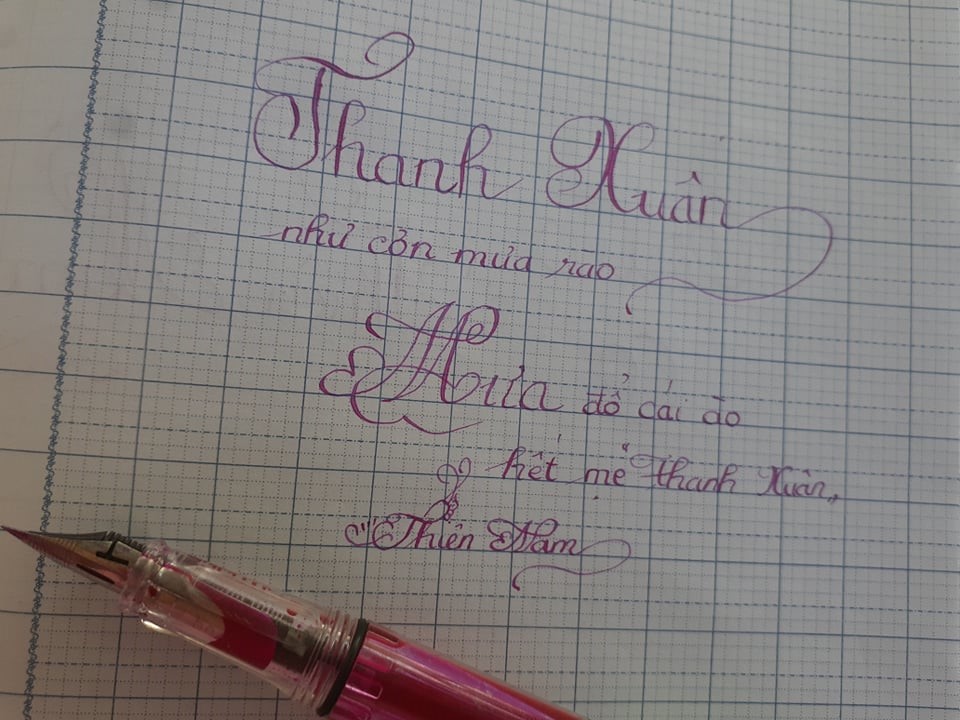 Thanh Xuân
như cơn mưa rao
Mưa đổ cái ào
hết mẹ thanh Xuân,
Thiên Nam